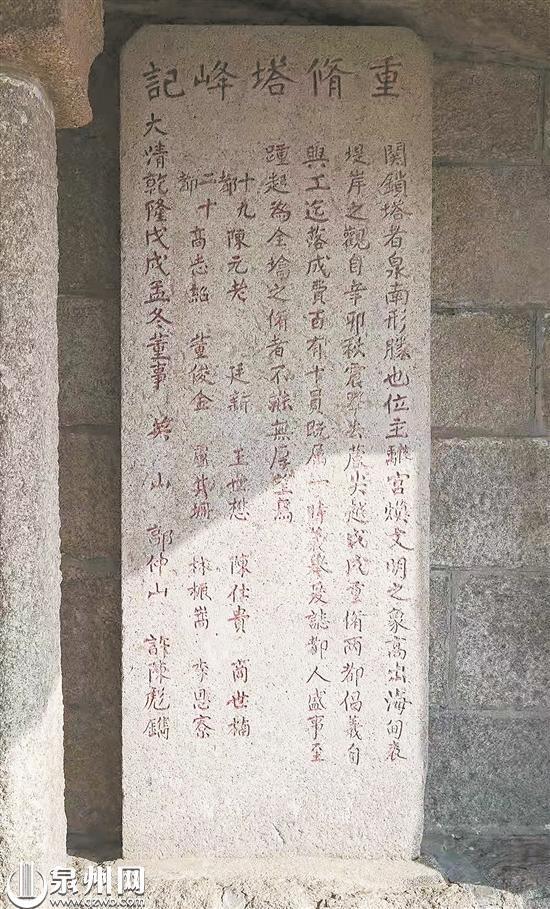 重脩塔峰記
関鎖塔者泉南形勝也位主離宮煥文明之象高出海甸表
堤岸之觀自辛卯秋震擊去尖越戊戌重脩兩都倡義自
興工迄落成費百有十員既属一時義舉爰誌都人盛事至
踵起為全墖之脩者不能無厚望焉
十九都 陳元老 廷新 王世懋 陳仕貴 商世楠
二十都 高志紹 董俊金 其珊 林振嵩 李恩察
大清乾隆戊戌孟冬董事 英山 郭仲山 許陳彪鐫
泉州网
www.qzwb.com